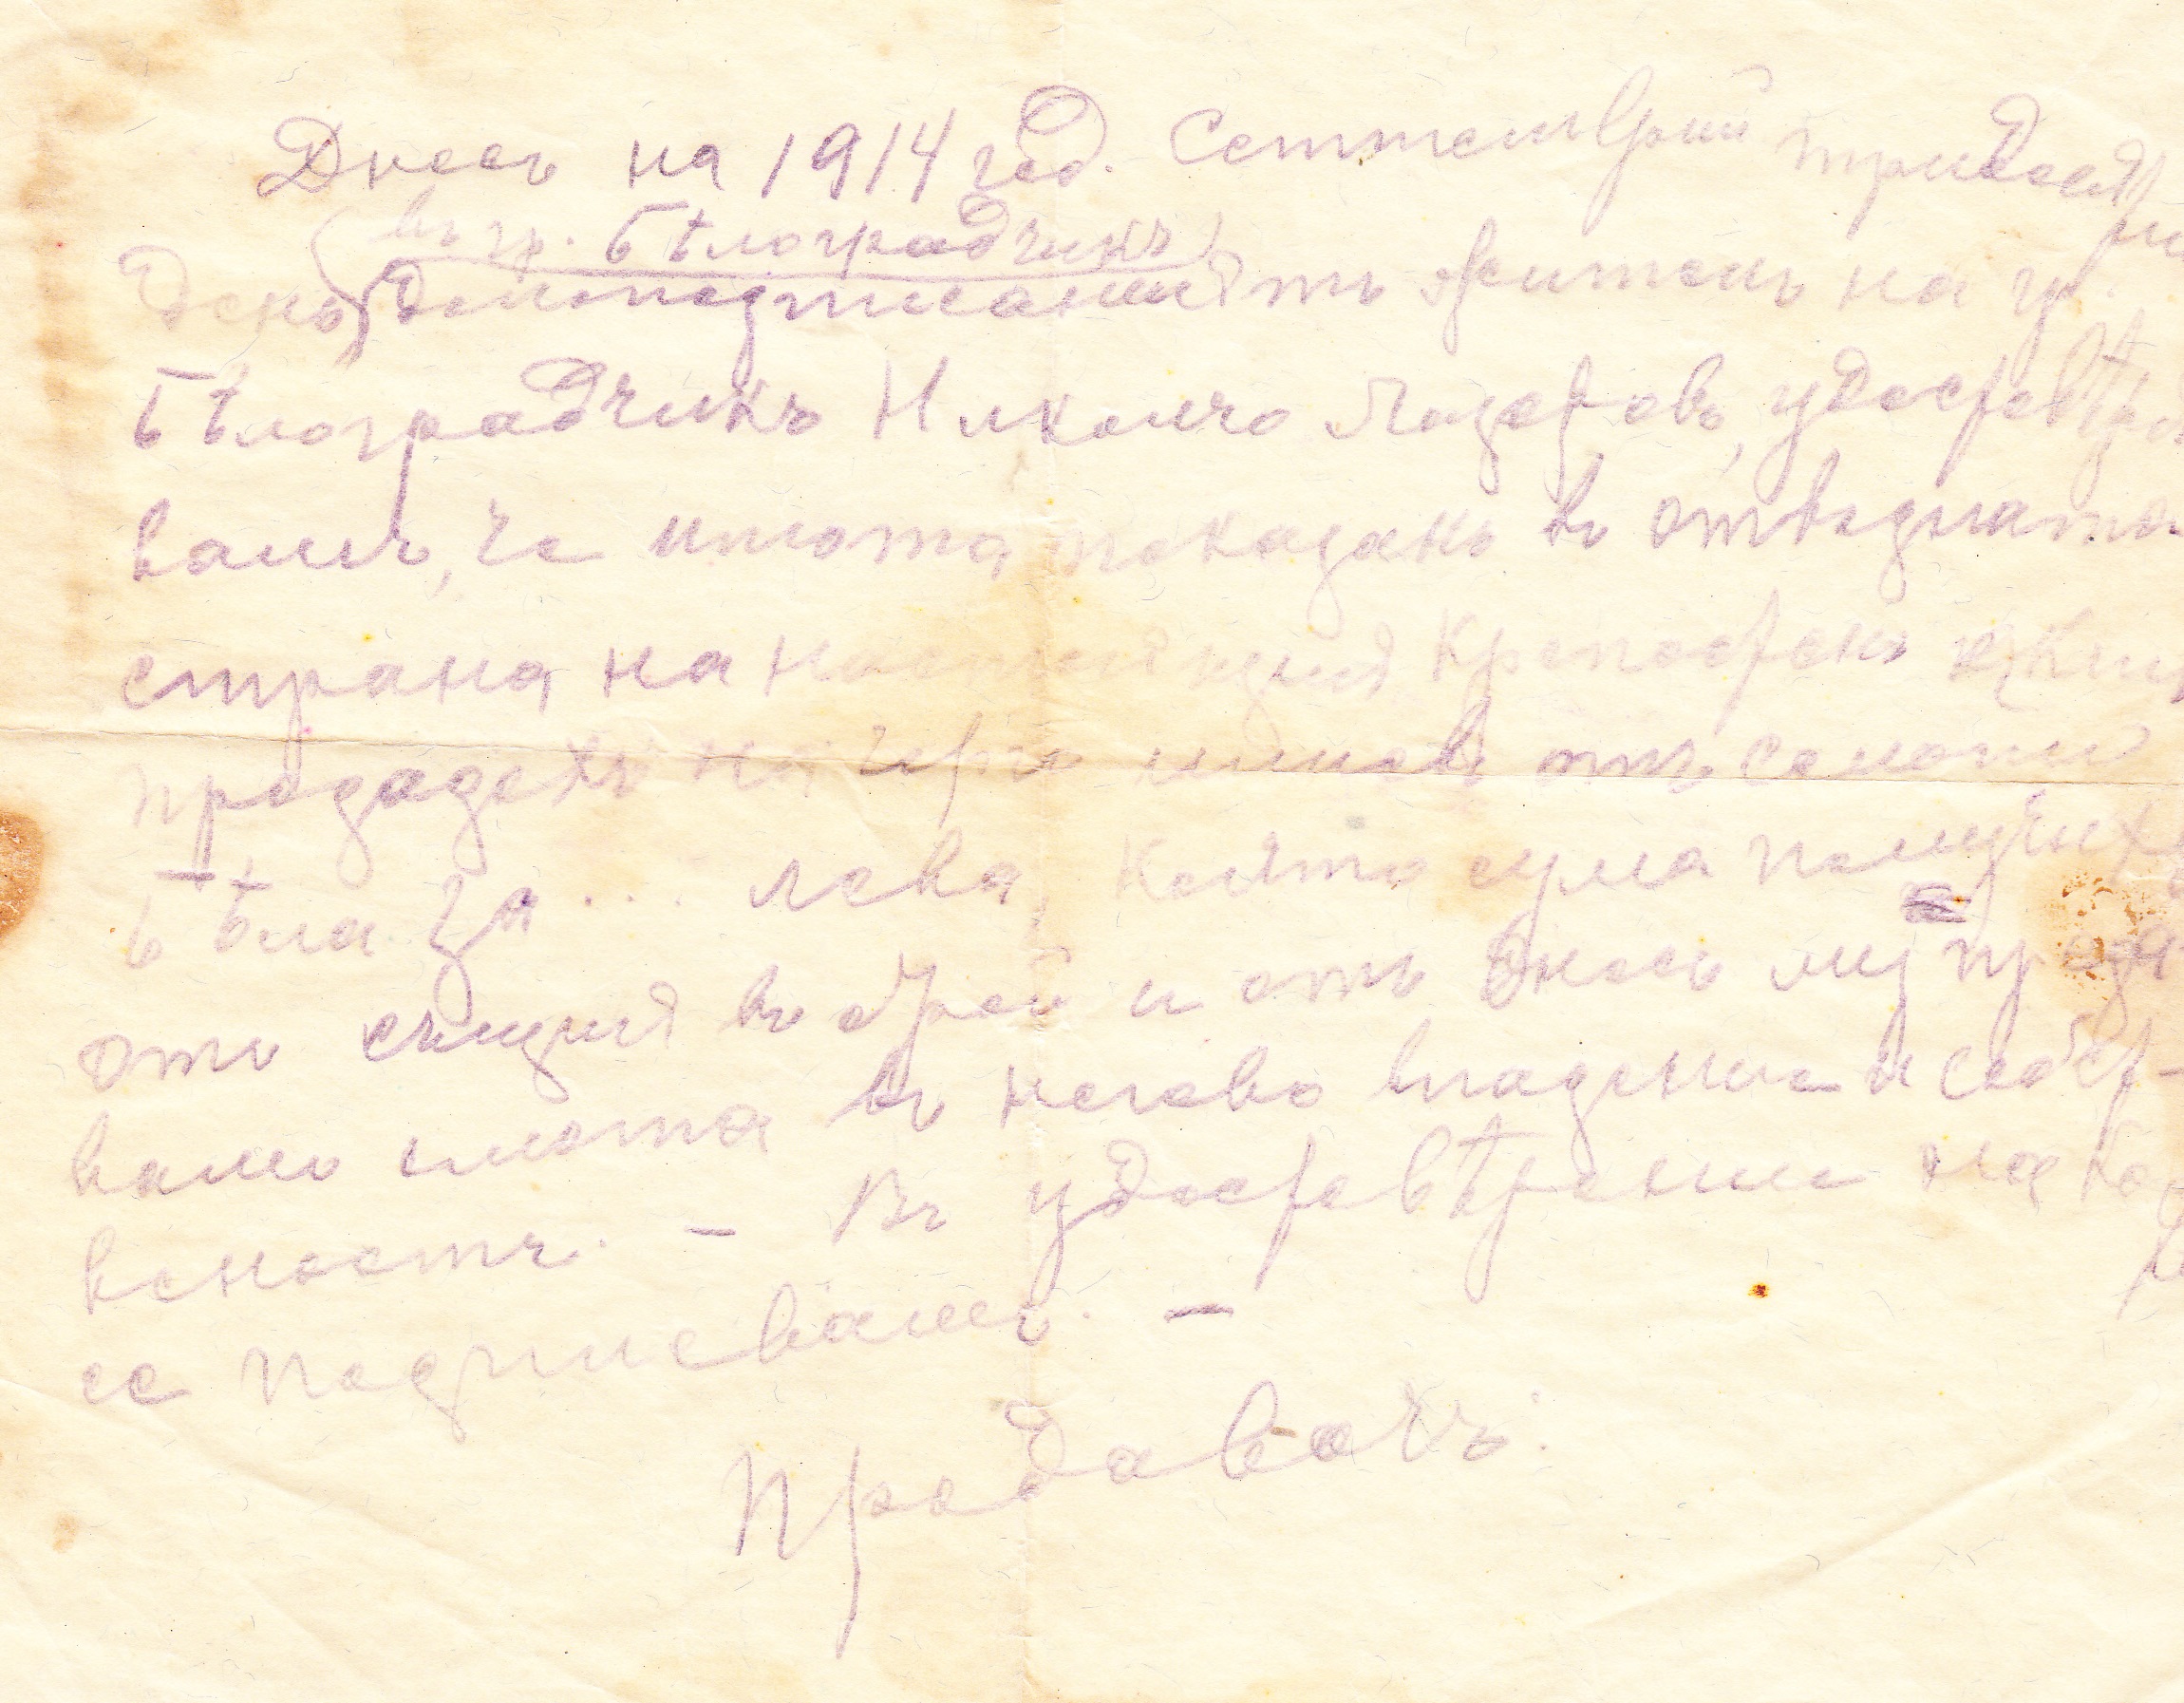 Днесь на 1914 год. Септемврий тридесят
въ гр. Бѣлоградчикъ
день долоподписаний тъ жителъ на гр.
Бѣлоградчикъ Николчо Лазаровъ, удостовѣря
вамъ, че имота показанъ въ отвъдната
страна на настоящия крепостенъ
продадохъ на отъ село
Бѣла за ... лева, която сума получихъ
отъ същия въ брой и отъ днесь му преда
вамъ имота въ негово владение и собст-
веность. – Въ удостовѣрение на кое
се подписвамъ. –
Продавачъ: